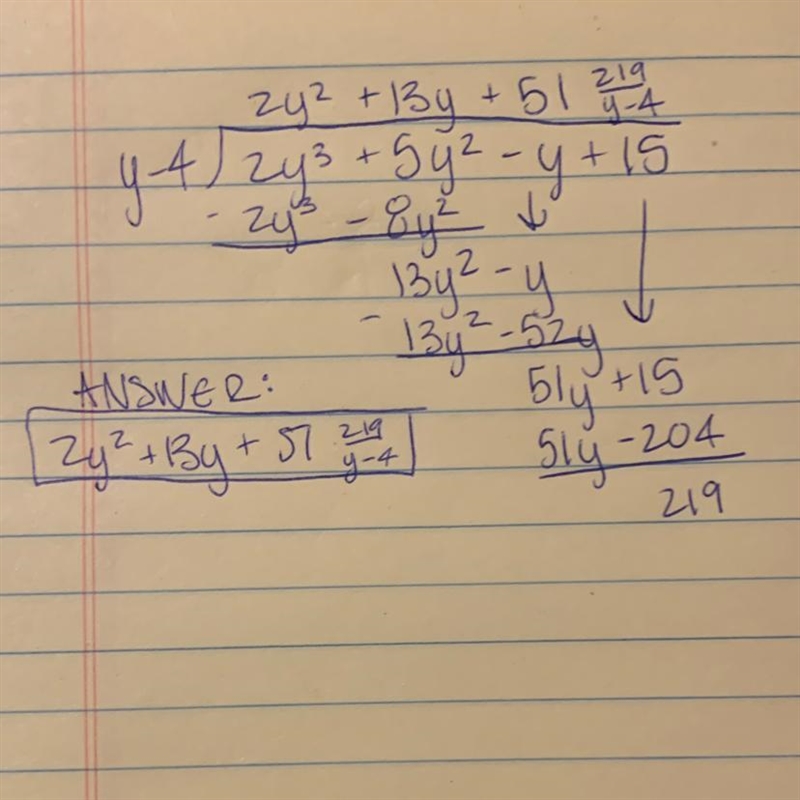 2y² + 13y + 51 219/y-4
y-4 ) 2y³ + 5y² - y + 15
- 2y³ - 8y² ↓
13y² - y
- 13y² - 52y
51y + 15
51y - 204
219
ANSWER:
2y² + 13y + 51 219/y-4